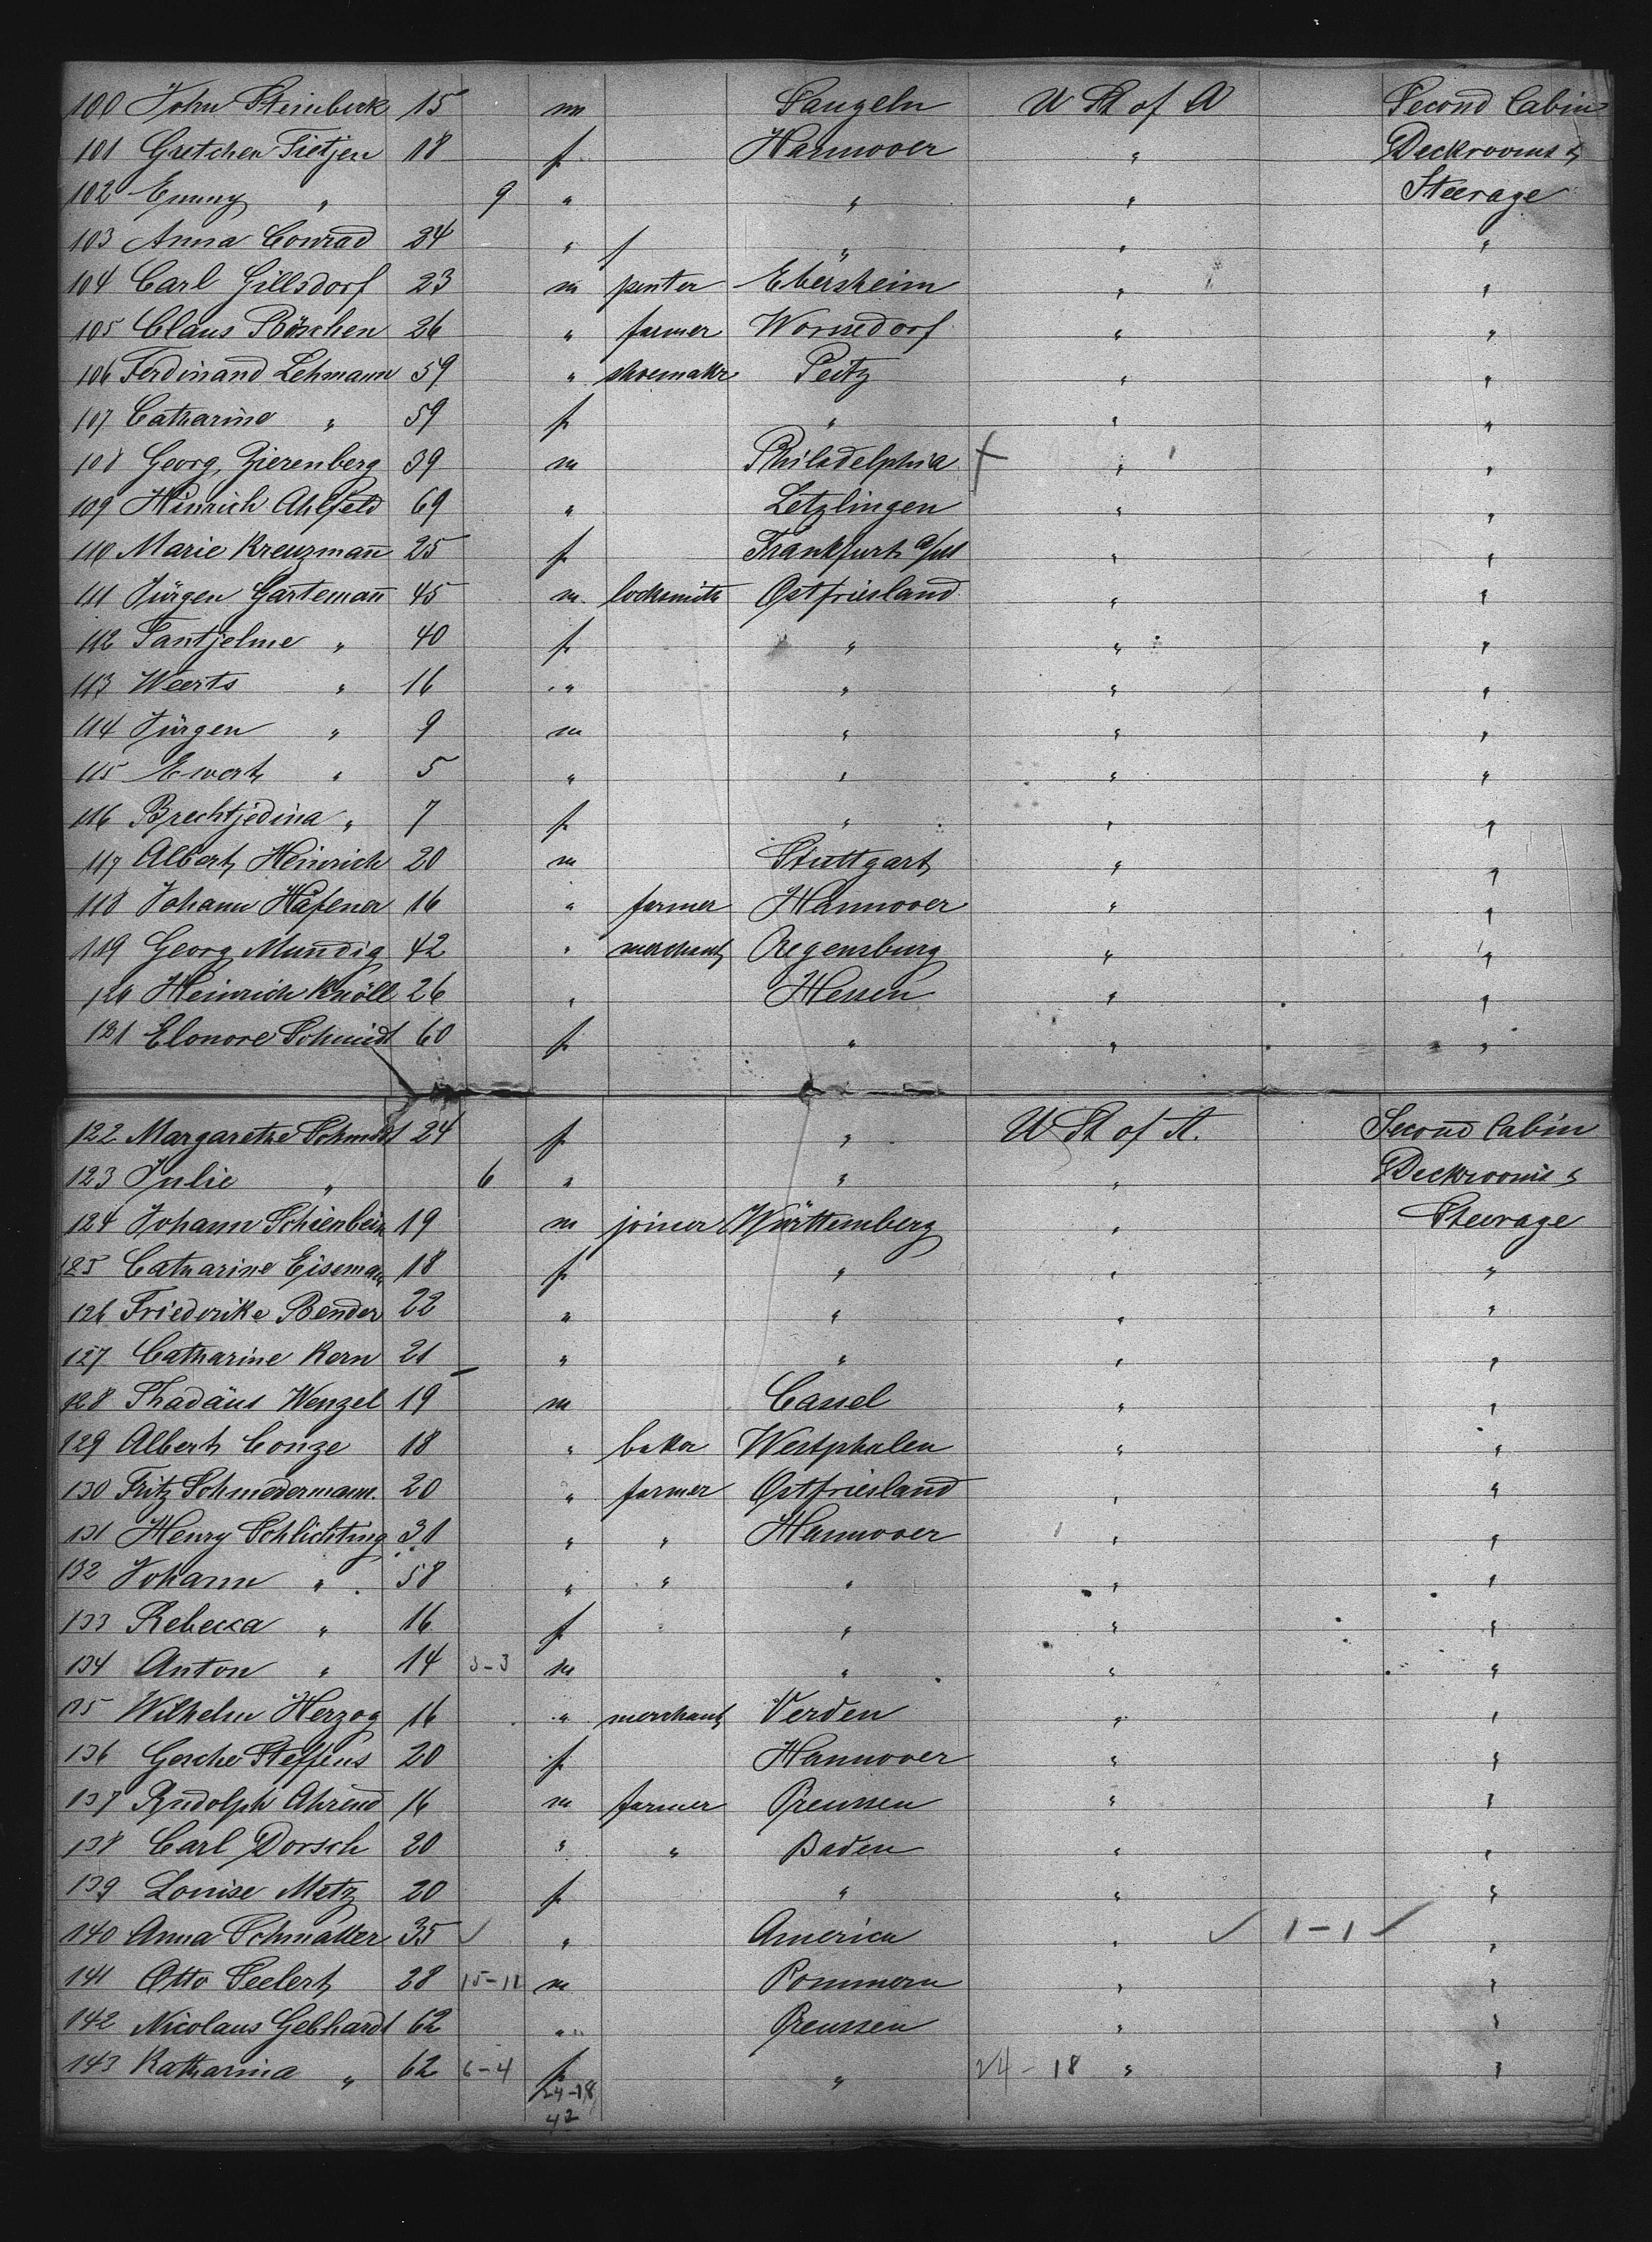 100 John Steinbeck 15 m Langeln U St of A Second Cabin
101 Gretchen Tietjen 18 f Hannover " Deckrooms &
102 Emmy " 9 " " " Steerage
103 Anna Conrad 24 " f " " "
104 Carl Gillsdorf 23 m penter Ebersheim " "
105 Claus Böschen 26 " farmer Worssedorf " "
106 Ferdinand Lehmann 59 " shoemakr Peitz " "
107 Catharine " 59 f " " "
108 Georg Zierenberg 39 m Philadelphia " "
109 Hinrich Ahlfeld 69 " Letzlingen " "
110 Marie Kreuzmañ 25 f Frankfurt a/M " "
111 Jürgen Gartemañ 45 m locksmith Ostfriesland " "
112 Tantjelme " 40 f " " "
113 Weerts " 16 " " " "
114 Jürgen " 9 m " " "
115 Ewert " 5 " " " "
116 Brechtjedina " 7 f " " "
117 Albert Heinrich 20 m Stuttgart " "
118 Johann Häfener 16 " farmer Hannover " "
119 Georg Mundig 42 " merchant Regensburg " "
120 Heinrich Knöll 26 " Hessen " "
121 Elonore Schmidt 60 f " " "
122 Margarethe Schmidt 24 f " U St of A. Second Cabin
123 Julie " 6 " " " Deckrooms &
124 Johann Schienbein 19 m joiner Württemberg " Steerage
125 Catharine Eisemann 18 f " " "
126 Friederike Bender 22 " " " "
127 Catharine Kern 21 " " " "
128 Thadäus Wenzel 19 m Cassel " "
129 Albert Conze 18 " baker Westphalen " "
130 Fritz Schmedermann. 20 " farmer Ostfriesland " "
131 Henry Schlichting 31 " " Hannover " "
132 Johann " 58 " " " " "
133 Rebecca " 16 f " " "
134 Anton " 14 3-3 m " " "
135 Wilhelm Herzog 16 " merchant Verden " "
136 Gesche Steffens 20 f Hannover " "
137 Rudolph Ahrend 16 m farmer Preussen " "
138 Carl Dorsch 20 " " Baden " "
139 Louise Metz 20 f " " "
140 Anna Schmatter 35 ✓ " America " ✓ 1-1 ✓ "
141 Otto Seelert 28 15-11 m Pommern " "
142 Nicolaus Gebhardt 62 " Preussen " "
143 Katharina " 62 6-4 f " 24-18 " "
24-18
42